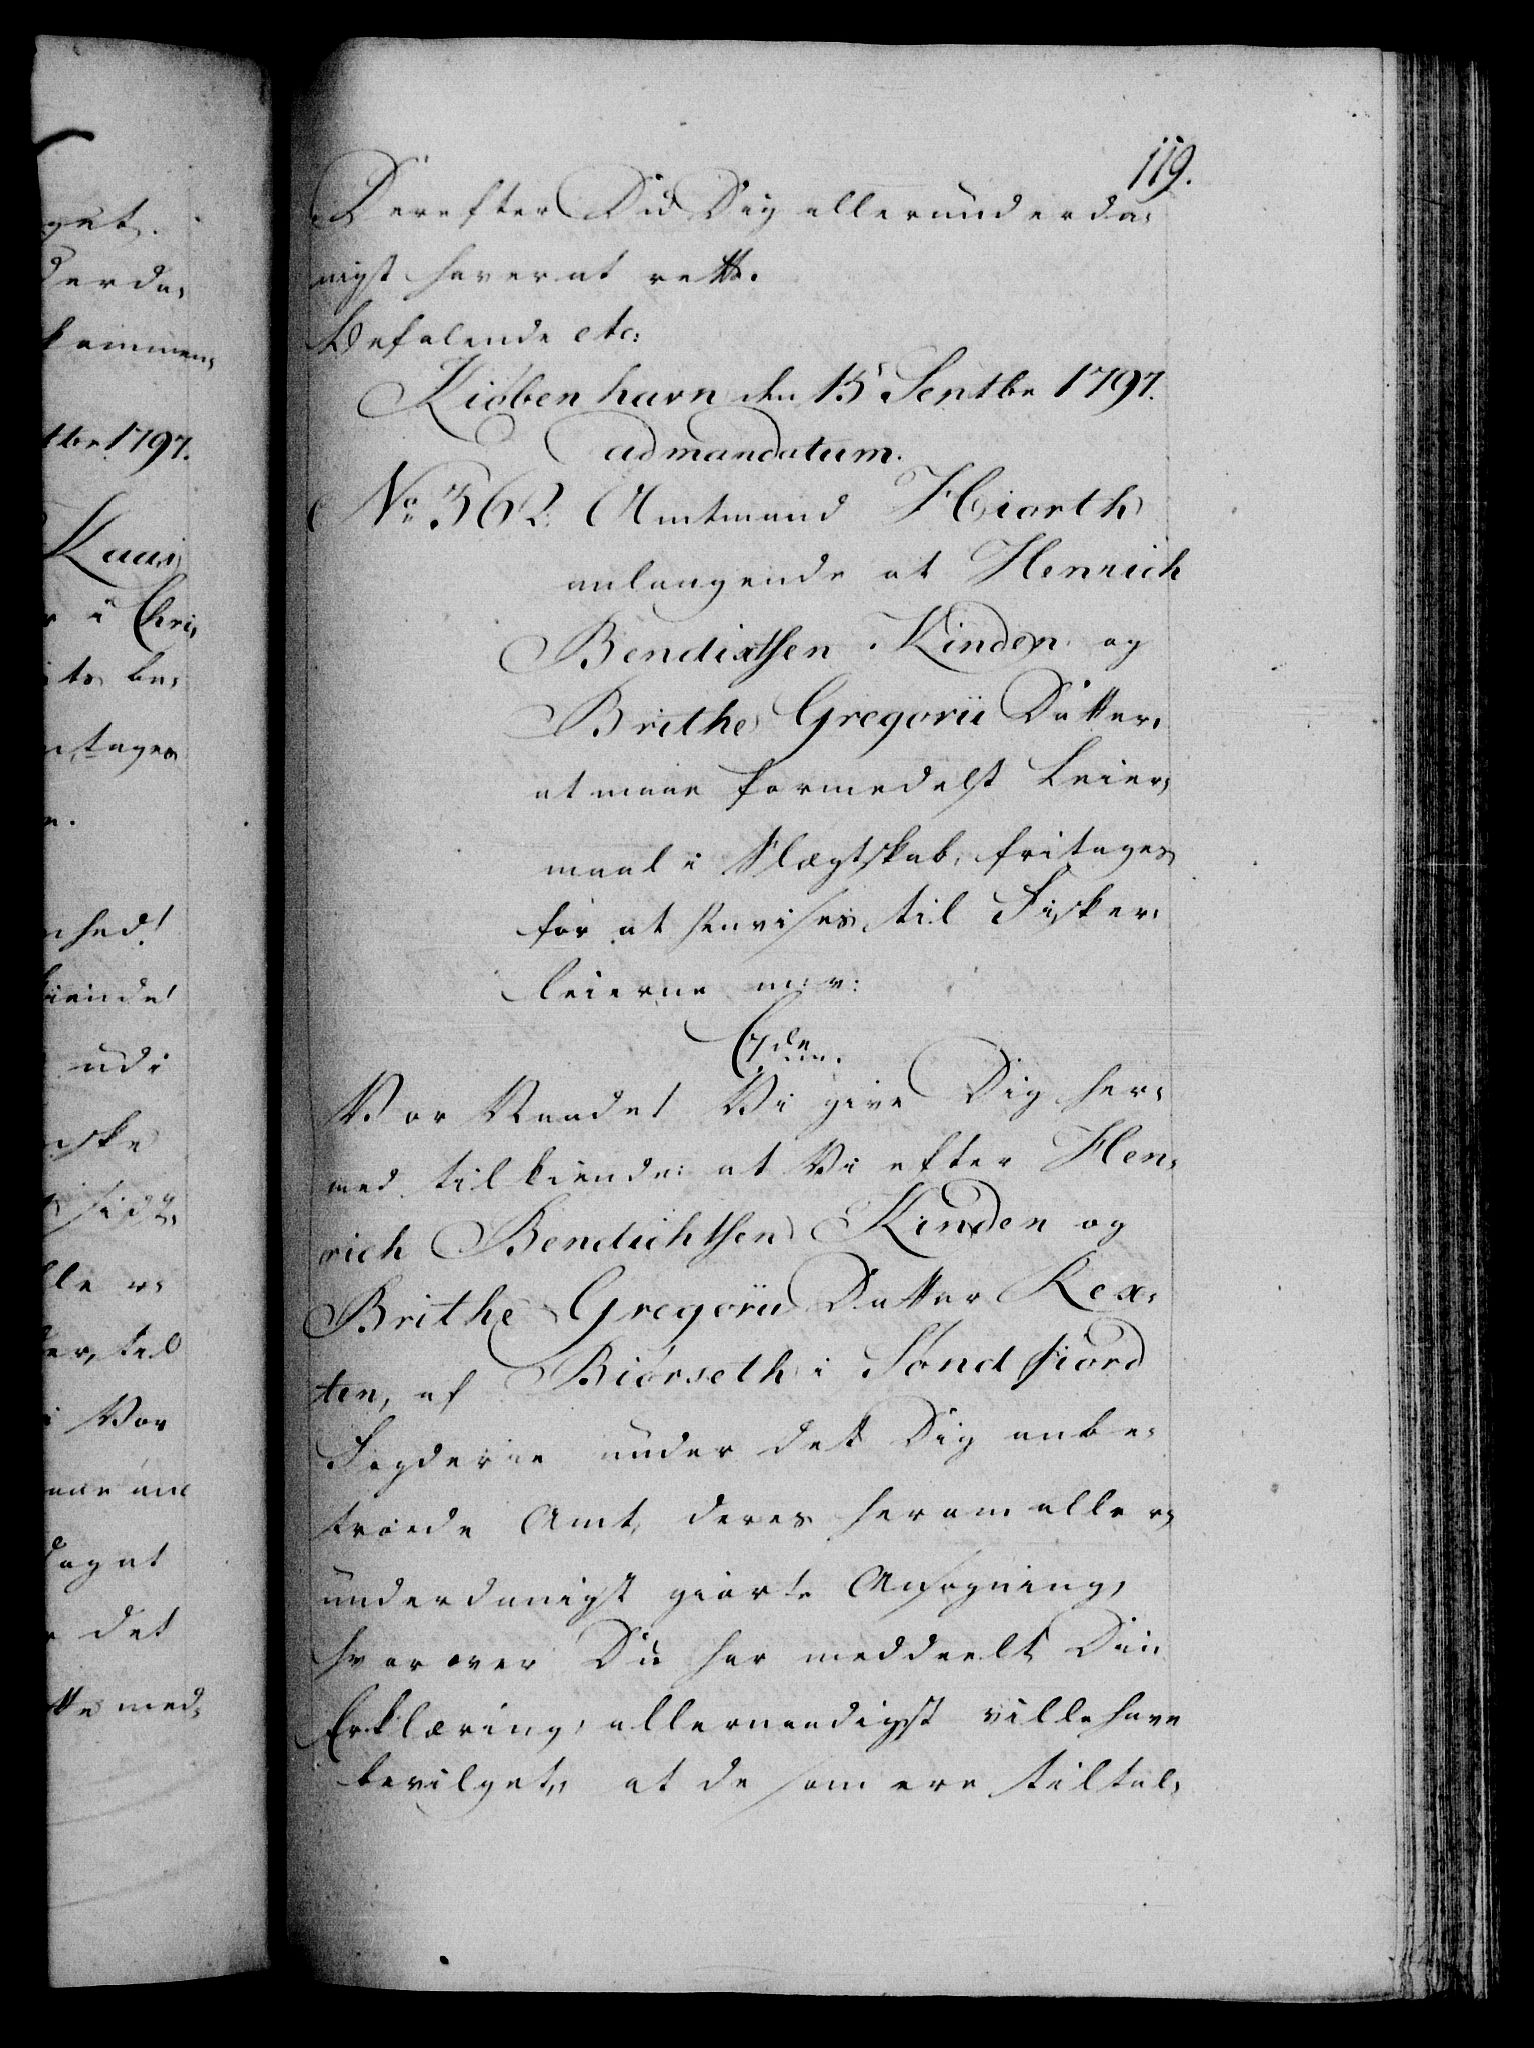 119.
Derefter Du Dig allerunderda-
nigst haver at rette.
Befalende etc:
Kiöbenhavn den 15 Septbr 1797.
ad mandatum.
No 362. Amtmand Hiorth
anlangende at Henrich
Bendixsen Kinden og
Brithe Gregorii Datter,
at maae formedelst Leier-
maal i Slægtskab, fritages
for at henvises til Fisker-
leierne m: v:
C 7de
Vor Naade! Vi give Dig her-
med tilkiende: at Vi efter Hen-
rich Bendichsen Kinden og
Brithe Gregorii Datter Rex-
ten, af Biörseth i Söndfiord
Fogderie under det Dig anbe-
troede Amt, deres herom aller-
underdanigst giorte Ansøgning,
hvorover Du har meddeelt Din
Erklæring, allernaadigst ville have
bevilget, at de som ere tiltal-
get.
derda-
kommen-
tbr 1797.
Kaas
r i Chri-
its be-
ntages
e.
nhed!
kiende!
udi
nske
lle r-
der, til
i Vor
dog at
r det
tte med-